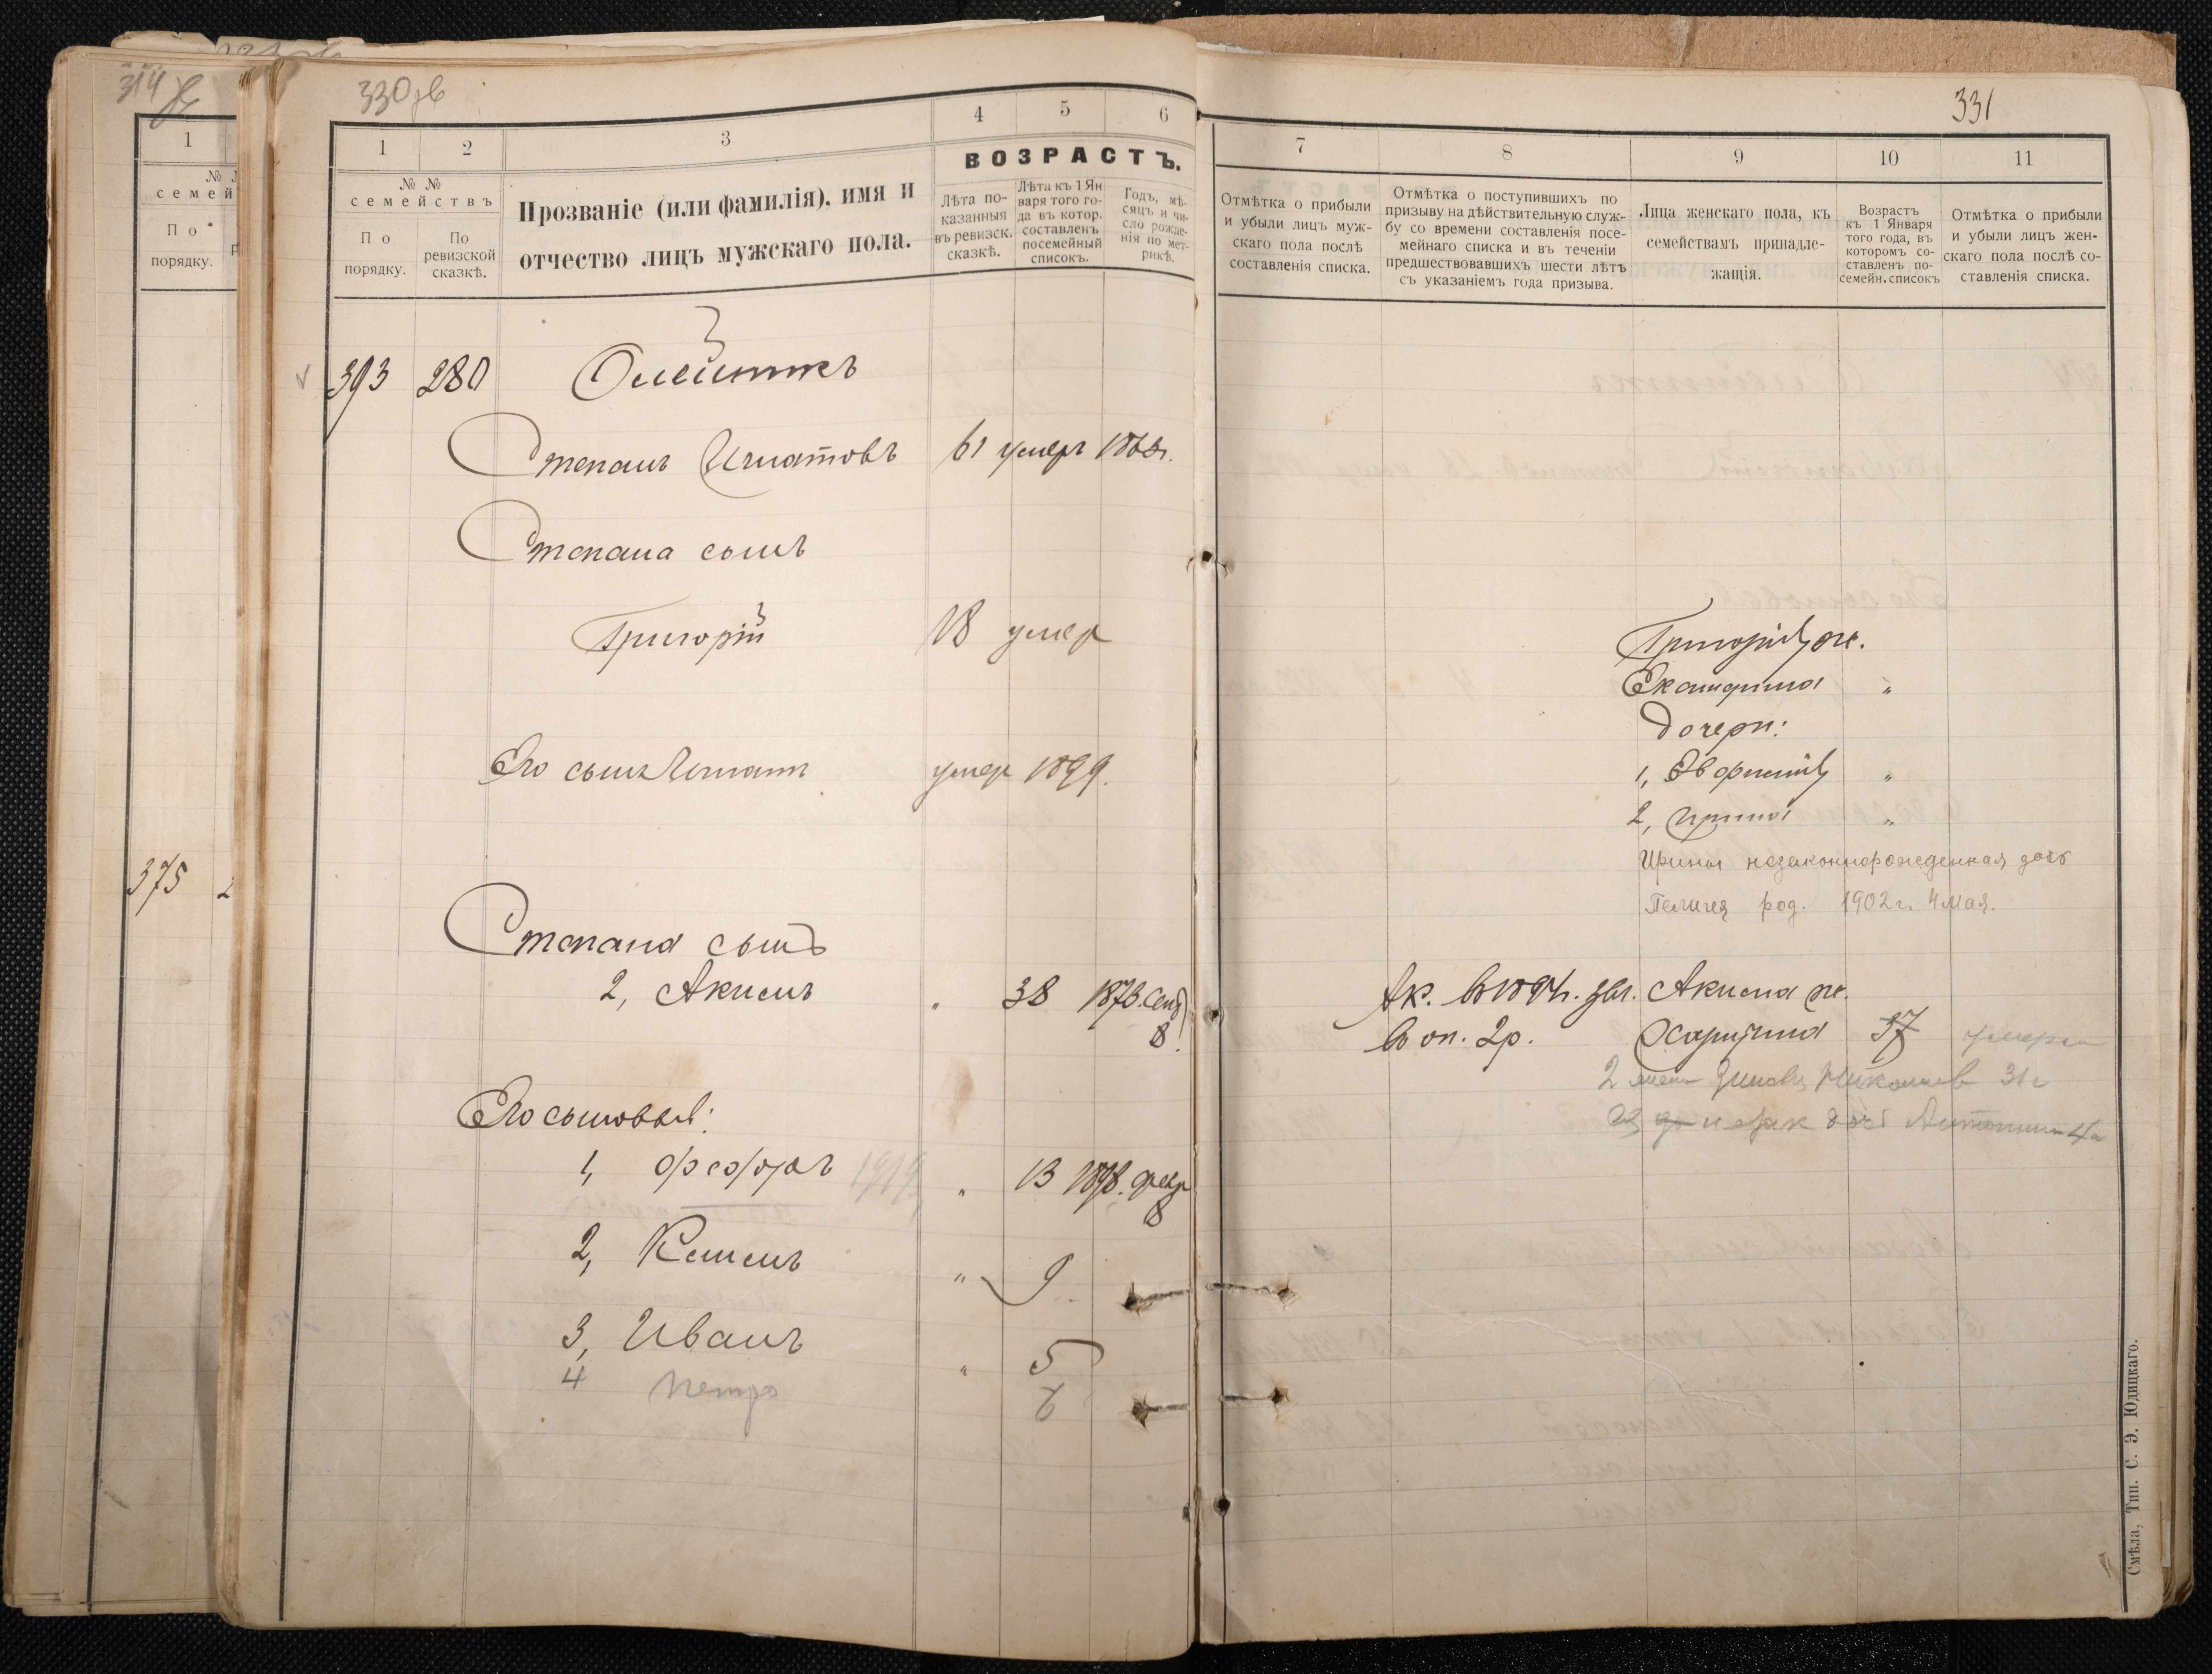 314
1
№
семей
По
порядку.
375
330 зв
1
2
3
4
5
6
№ №
семействъ
По
порядку.
По
ревизской
сказкѣ.
Прозваніе (или фамилія), имя и
отчество лицъ мужскаго пола.
ВОЗРАСТЪ.
Лѣта по-
казанныя
въ ревизск.
сказкѣ.
Лѣта къ 1 Ян
варя того го-
да въ котор.
составленъ
посемейный
списокъ.
Годъ, мѣ-
сяцъ и чи-
сло рожде-
нія по мет-
рикѣ.
393 280 Олейникъ
Степанъ Игнатовъ 61 умеръ 186
Степана сынъ
Григорій 18 умер
Его сынъ Игнатъ умер 1899.
Степана сынъ
2, Акимъ " 38 1873. Сент
8.
Его сыновья:
1, Федоръ 1919 " 13 1898. февр
8
2, Климъ " 9
3, Иванъ " 5
4 Петро 6
331
7
8
9
10
11
Отмѣтка о прибыли
и убыли лицъ муж-
скаго пола послѣ
составленія списка.
Отмѣтка о поступившихъ по
призыву на дѣйствительную служ-
бу со времени составленія посе-
мейнаго списка и въ теченіи
предшествовавшихъ шести лѣтъ
съ указаніемъ года призыва.
Лица женскаго пола, къ
семействамъ принадле-
жащія.
Возрастъ
къ 1 Января
того года, въ
которомъ со-
ставленъ по-
семейн. списокъ
Отмѣтка о прибыли
и убыли лицъ жен-
скаго пола послѣ со-
ставленія списка.
Григорія ж.
Екатерина "
Дочери:
1, Евфимія "
2, Ирина "
Ирины незаконнорожденная дочь
Пелагея род. 1902 г. 4 мая.
Ак. въ 189 г. зач. Акима ж.
въ оп. 2 р. Харитина 37 умерла
2 жена Николаев 31 г
дочь Антонина 4 г
Смѣла, Тип. С. Э. Юдицкаго.